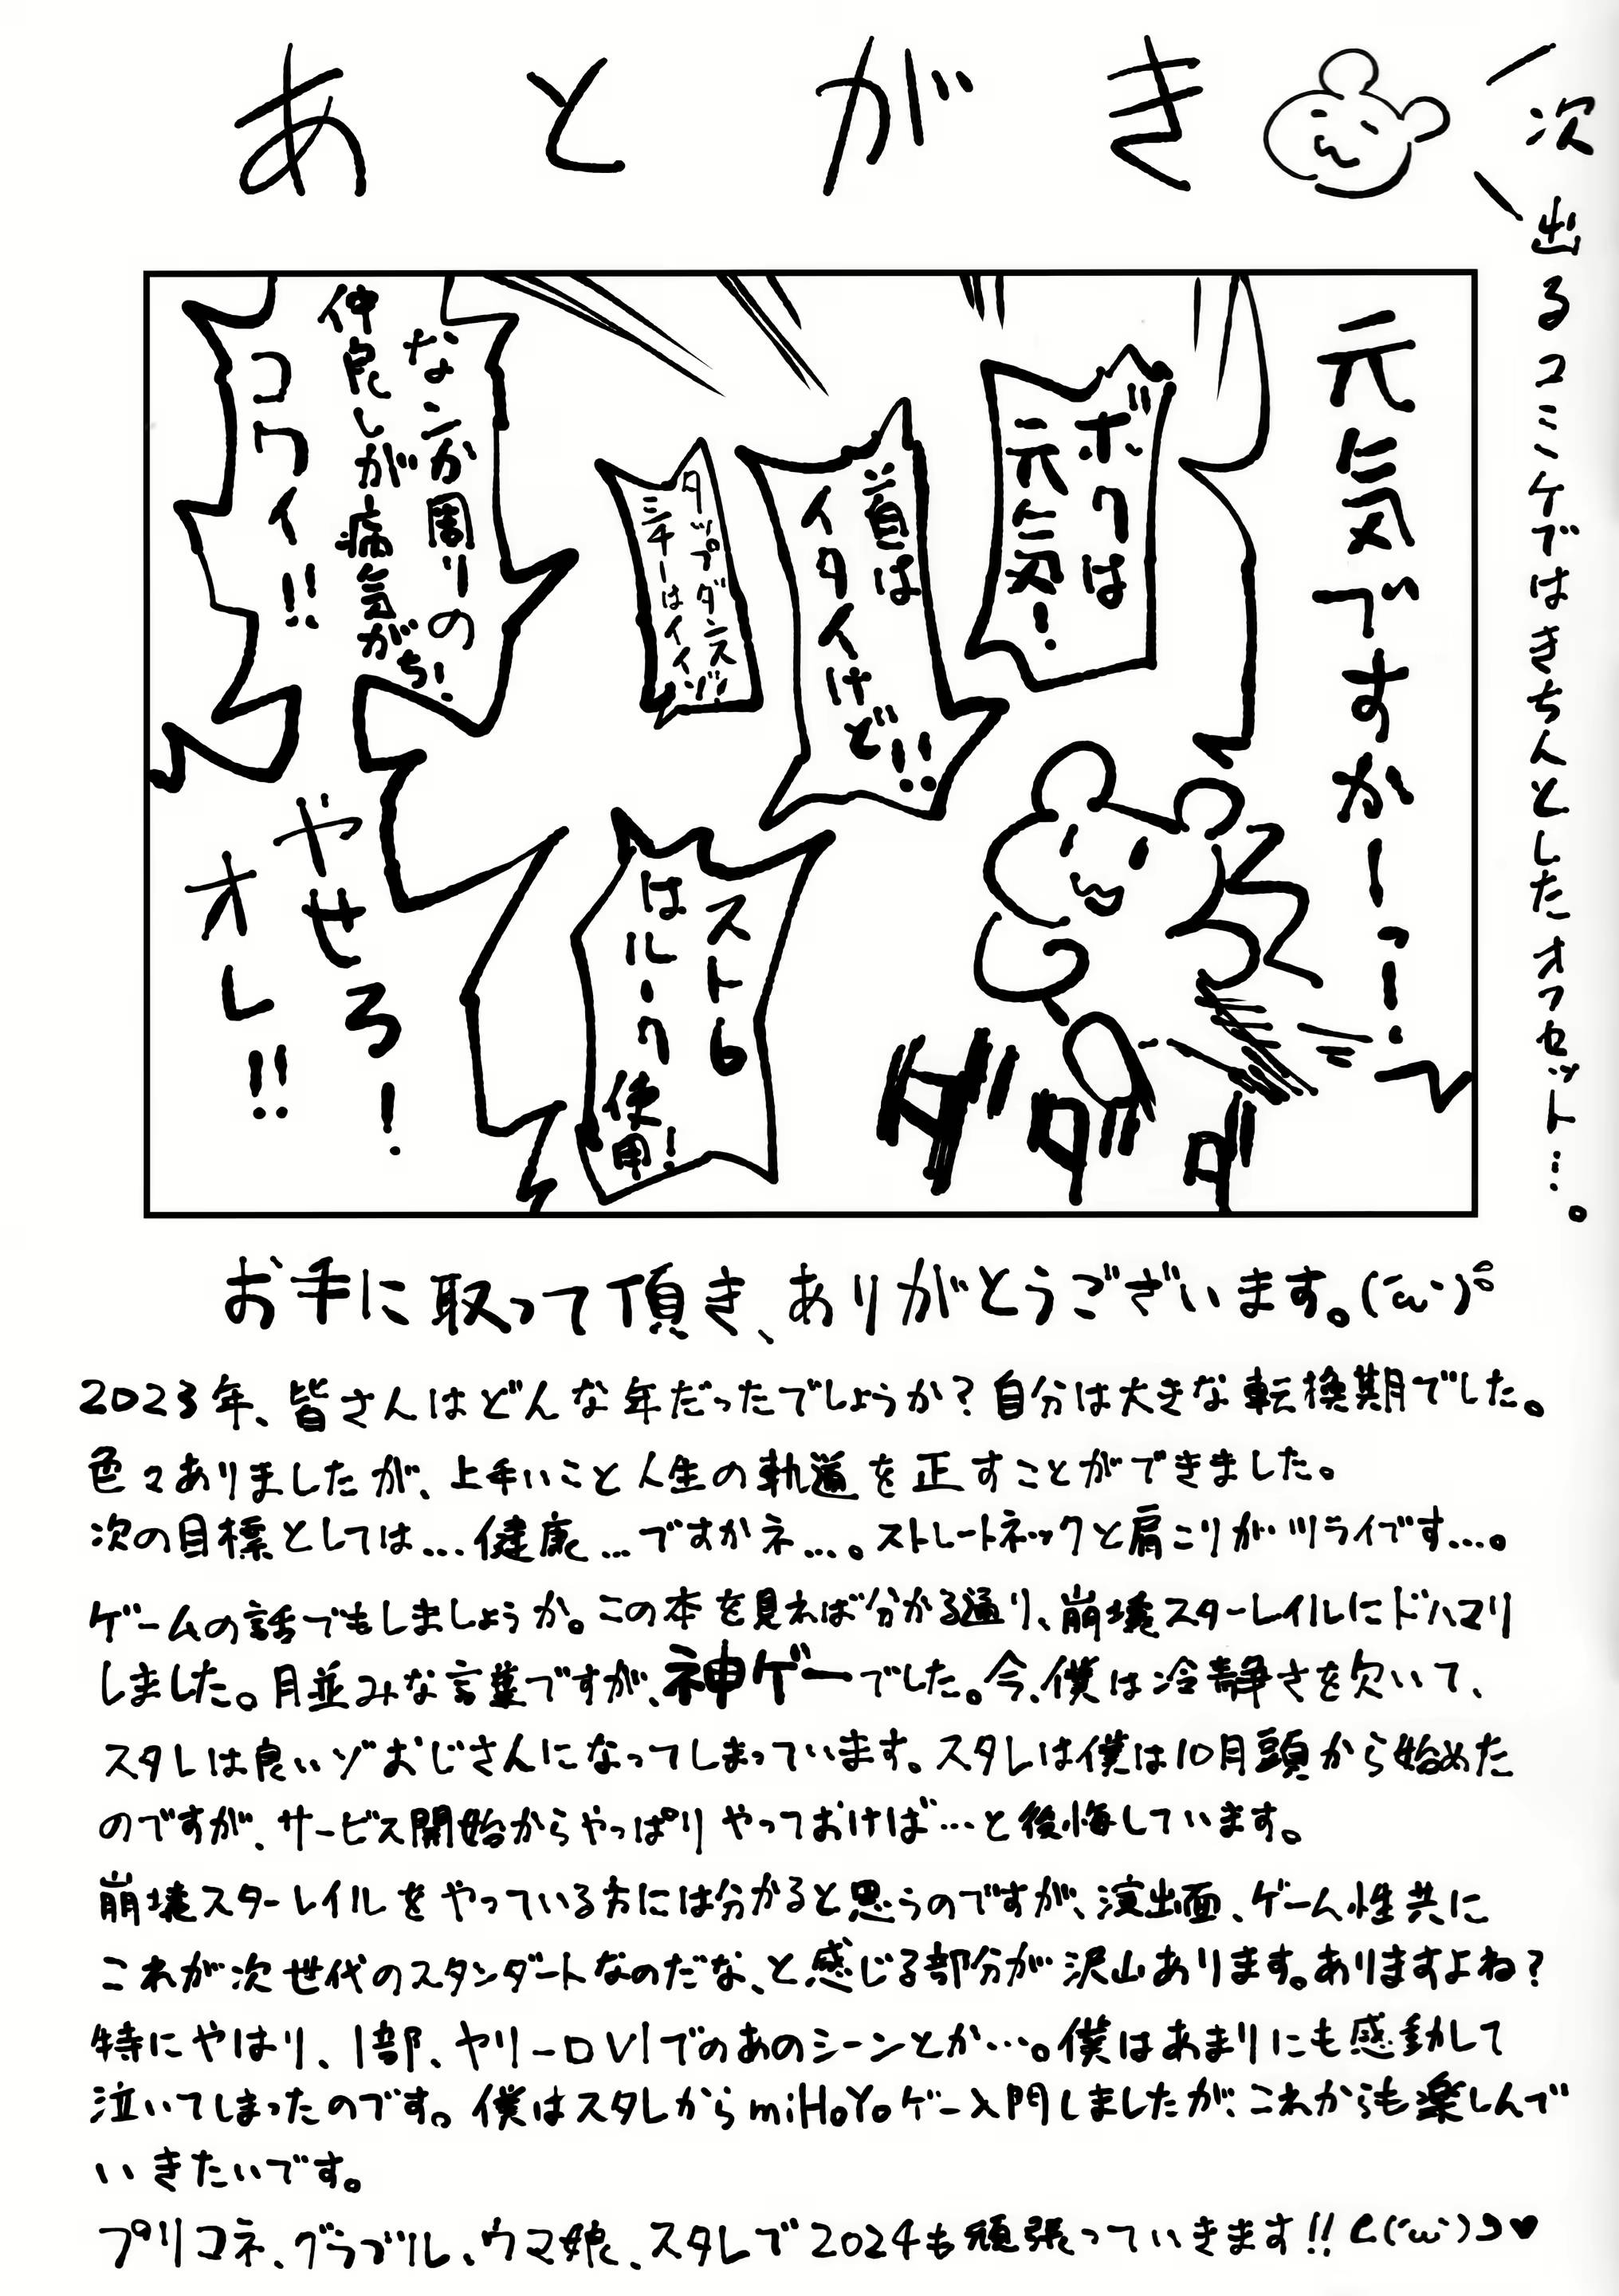 あとがき
次出るコミケではきちんとしたオフセット…。
元気ですかーっ!
ボクは
元気!
首は
イタイけど!!
タップダンス
シチーはイイゾ!!
なンか周りの
仲良しが病気がち!
コワイ!!
スト6
はルーク
使用!
やせろ!
オレ!!
ダダダ
お手に取って頂き、ありがとうございます。(´ω`)
2023年、皆さんはどんな年だったでしょうか?自分は大きな転換期でした。
色々ありましたが、上手いこと人生の軌道を正すことができました。
次の目標としては…健康…ですかネ…。ストレートネックと肩こりがツライです…。
ゲームの話でもしましょうか。この本を見れば分かる通り、崩壊スターレイルにドハマリ
しました。月並みな言葉ですが、神ゲーでした。今、僕は冷静さを欠いて、
スタレは良いゾおじさんになってしまっています。スタレは僕は10月頭から始めた
のですが、サービス開始からやっぱりやっておけば…と後悔しています。
崩壊スターレイルをやっている方には分かると思うのですが、演出面、ゲーム性共に
これが次世代のスタンダートなのだな、と感じる部分が沢山あります。ありますよね?
特にやはり、1部、ヤリーロVIでのあのシーンとか…。僕はあまりにも感動して
泣いてしまったのです。僕はスタレからmiHoYoゲー入門しましたが、これからも楽しんで
いきたいです。
プリコネ、グラブル、ウマ娘、スタレで2024も頑張っていきます!!⊂(´ω`)⊃♥